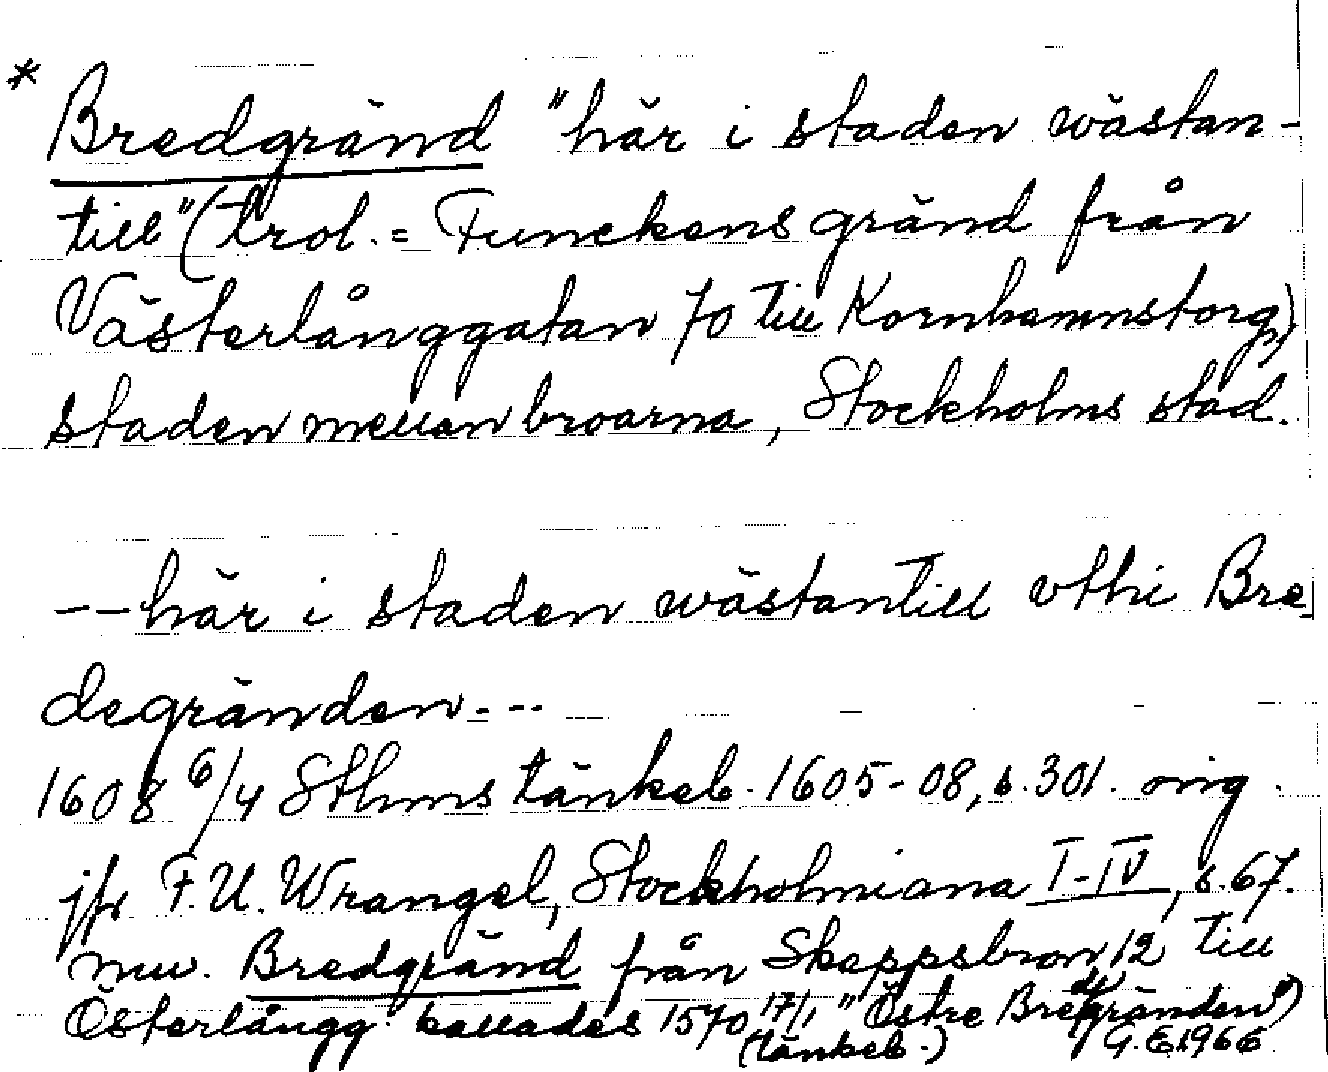 * Bredgränd "här i staden wästan-
till" (trol. = Funckens gränd från
Västerlånggatan 70 till Kornhamnstorg),
staden mellan broarna, Stockholms stad.
-- här i staden wästantill vthi Bre
degränden - --
1608 6/4 Sthms tänkeb. 1605-08, s. 301. orig.
jfr F.U. Wrangel, Stockholmiana I-IV, s. 67.
nuv. Bredgränd från Skeppsbron 12 till
Österlångg. kallades 1570 17/1 "Östre Bredgränden")
(tänkeb.) G.E. 1966